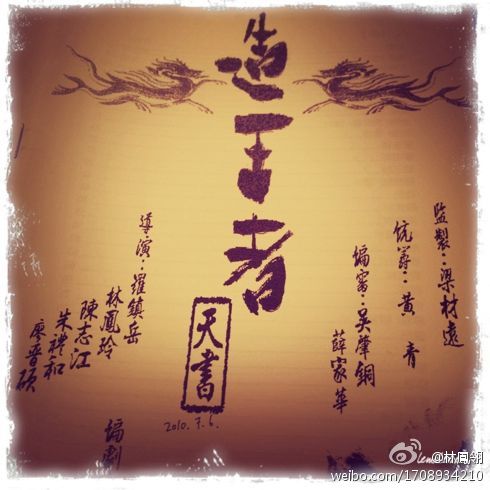 造王者
天書
2010.7.6.
監製:梁材遠
黃青
編審:吳肇銅
薛家華
導演:羅鎮岳
林鳳玲
陳志江
朱禮和
廖晉碩
編劇
@林鳳翎
weibo.com/1708934210